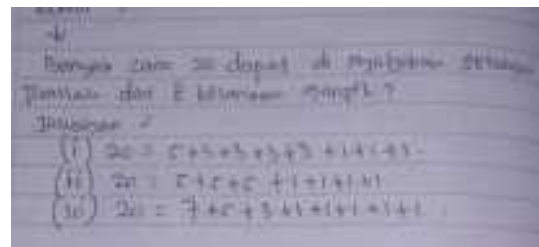 Banyak cara 20 dapat di nyatakan sebagai
jumlah dari 8 bilangan ganjil ?
Jawaban :
(i) 20 = 5+3+3+3+3+1+1+1
(ii) 20 = 5+5+5+1+1+1+1
(iii) 20 = 7+5+3+1+1+1+1+1